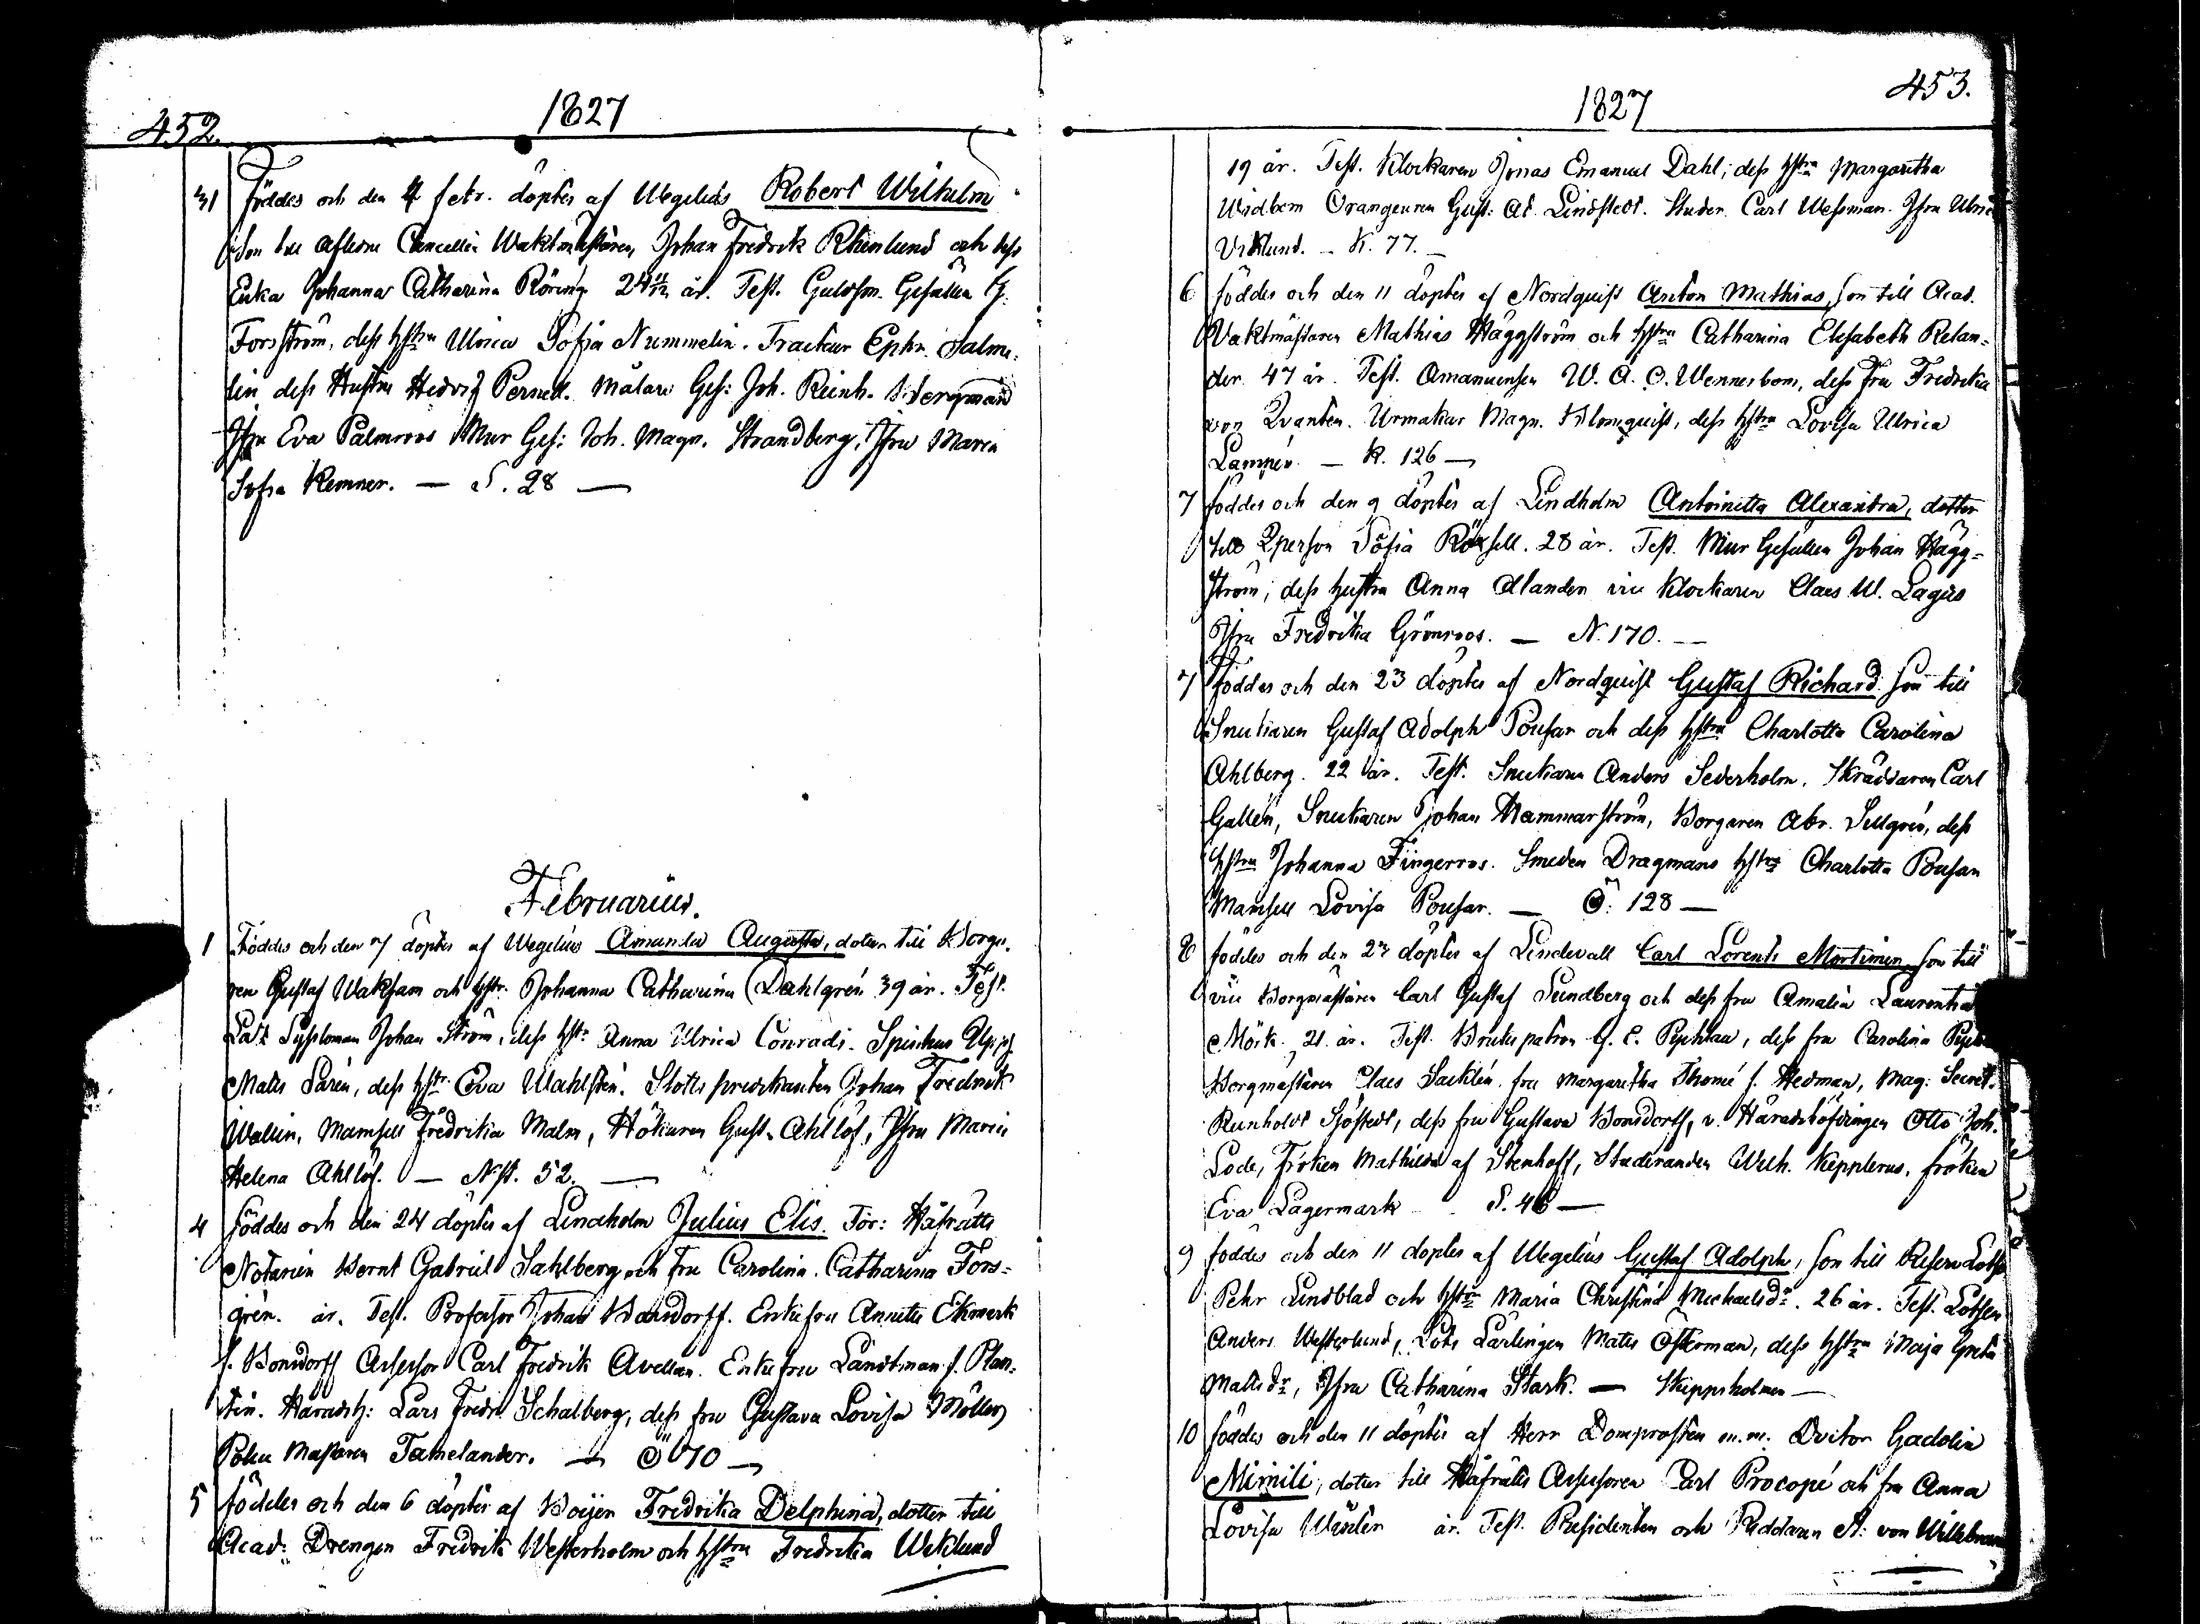 452.
1827
31 föddes och den 4 febr. döptes af Wegelius Robert Wilhelm
Son till aflidne Cancellie Waktmästaren Johan Fredrik Rhenlund och dess
Enka Johanna Catharina Röring 24 år. Test. Guldsm. Gesällen G.
Forsström, dess hstru Ulrica Sofia Nummelin. Tracteur Ephr. Salme-
lin dess Hustru Hedvig Pernell. Målare Ges: Joh. Reinh. Bergman
Jfru Eva Palmroos Mur Ges: Joh. Magn. Strandberg, Jfru Maria
Sofia Remner. — S. 28 —
Februarius.
1 Föddes och den 7 döptes af Wegelius Amanda Augusta, dotter till Borga-
ren Gustaf Waksam och hstr. Johanna Catharina Dahlgrén 39 år. Test.
Syssloman Johan Ström, dess hstr Anna Ulrica Conradi. Spinhus
Matts Sarén, dess hstr. Eva Wahlstén. Slotts predikanten Johan Fredrik
Wallin, Mamsell Fredrika Malm, Hökaren Gust. Ahllöf, Jfru Maria
Helena Ahllöf. — N st. 52. —
4 föddes och den 24 döptes af Lindholm Julius Elis. För: Håfrätts
Notarien Bernt Gabriel Sahlberg och Fru Carolina Catharina Fors-
grén. år. Test. Professor Johan Bonsdorff. Enkefru Annette Ekmark
f. Bonsdorff Assessor Carl Fredrik Avellan. Enkefru Landtman f. Plan-
tin. Häradsh: Lars Fredr Schalberg, dess fru Gustava Lovisa Möller
Mästaren Tamelander. — Ö 70 —
5 föddes och den 6 döptes af Boijer Fredrika Delphina, dotter till
Acad: Drengen Fredrik Westerholm och hstru Fredrika Wiklund
453.
1827
19 år. Test. Klockaren Jonas Emanuel Dahl, dess hstru Margaretha
Widbom Orangeuren Gust: Ad. Lindstedt. Studer. Carl Wessman. Jfru
Viklund. — K. 77. —
6 föddes och den 11 döptes af Nordquist Anton Mathias, son till Acad.
Vaktmästaren Mathias Häggström och hstru Catharina Elisabeth Relan-
der. 47 år. Test. Amanuensen W. A. O. Wennerbom, dess fru Fredrika
von Qvanten. Urmakar Magn. Blomquist, dess hstru Lovisa Ulrica
Lampén. — K. 126 —
7 föddes och den 9 döptes af Lindholm Antoinetta Alexandra, dotter
till Qperson Sofia Roxell. 28 år. Test. Mur Gesällen Johan Hägg-
ström, dess hustru Anna Alander vice Klockaren Claes W. Lagus
Jfru Fredrika Grönroos. — N. 170. —
7 föddes och den 23 döptes af Nordquist Gustaf Richard Son till
Snickaren Gustaf Adolph Pousar och dess hstru Charlotta Carolina
Ahlberg. 22 år. Test. Snickaren Anders Sederholm. Skräddaren Carl
Gallén, Snickaren Johan Hammarström, Borgaren Abr. Sellgrén, dess
hstru Johanna Fingerroos. Smeden Dragmans hstru Charlotta Pousar
Mamsell Lovisa Pousar. — Ö: 128 —
8 föddes och den 23 döptes af Lindevall Carl Lorents Mortimer, son till
vice Borgmästaren Carl Gustaf Sundberg och dess fru Amalia Laurentia
Mörk. 21. år. Test. Brukspatron G. E. dess fru Carolina
Borgmästaren Claes Sacklén. fru Margaretha Thomé f. Hedman, Mag: Secret.
Runholdt Sjöstedt, dess fru Gustava Bonsdorff, v. Häradshöfdingen Otto Joh.
Lode, fröken Mathilda af Stenhoff, Studeranden Wilh. Kepplerus, fröken
Eva Lagermark — S. 46 —
9 föddes och den 11 döptes af Wegelius Gustaf Adolph, son till Reserv Lotsen
Pehr Lindblad och hstru Maria Christina Michaelsdr. 26 år. Test. Lotsen
Anders Westerlund, Lots Lärlingen Matts Österman, dess hstru Maja Greta
Mattsdr, Jfru Catharina Stark. — Skeppsholmen —
10 föddes och den 11 döptes af Herr Domprosten m.m. Doctor Gadolin
Mimili, dotter till Håfrätts Assessoren Carl Procopé och fru Anna
Lovisa år. Test. Presidenten och Riddaren A: von Willebrand